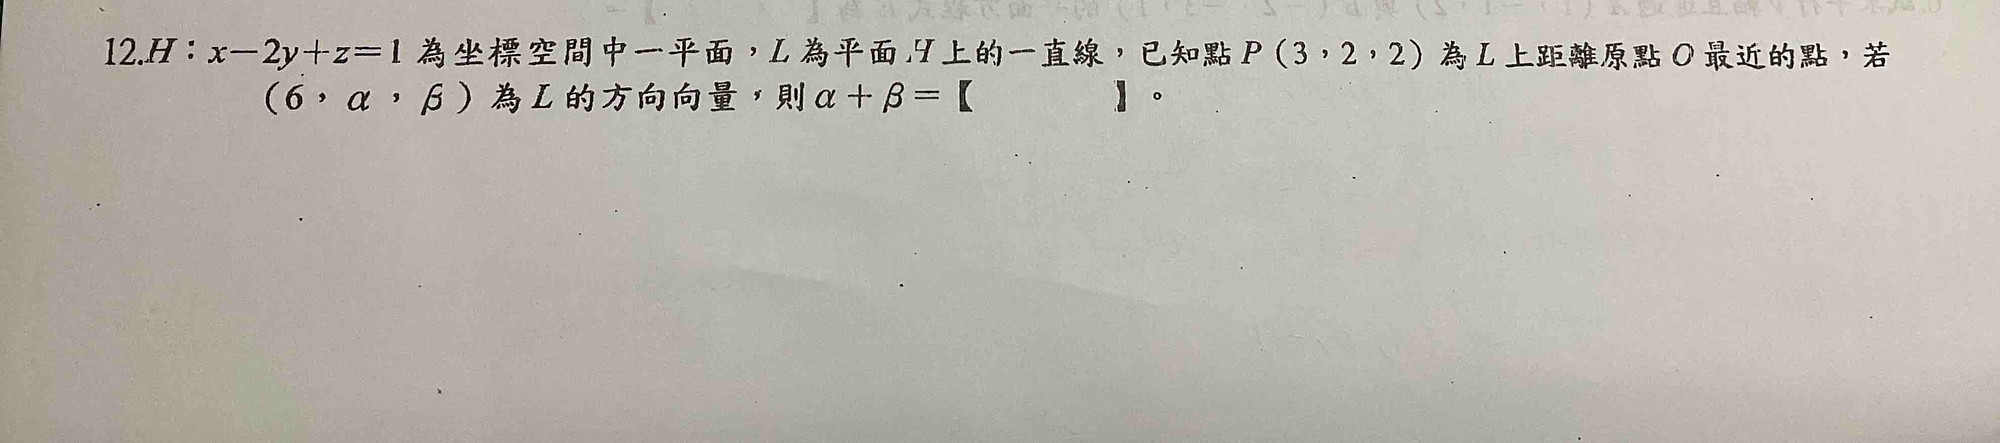 12.H：x－2y＋z＝1 為坐標空間中一平面，L 為平面 H 上的一直線，已知點 P（3，2，2）為 L 上距離原點 O 最近的點，若
（6，α，β）為 L 的方向向量，則 α＋β＝【　　　　】。